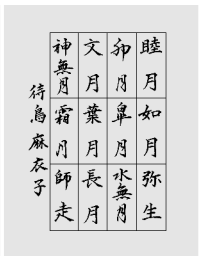 睦月如月弥生
卯月皐月水無月
文月葉月長月
神無月霜月師走
待鳥麻衣子